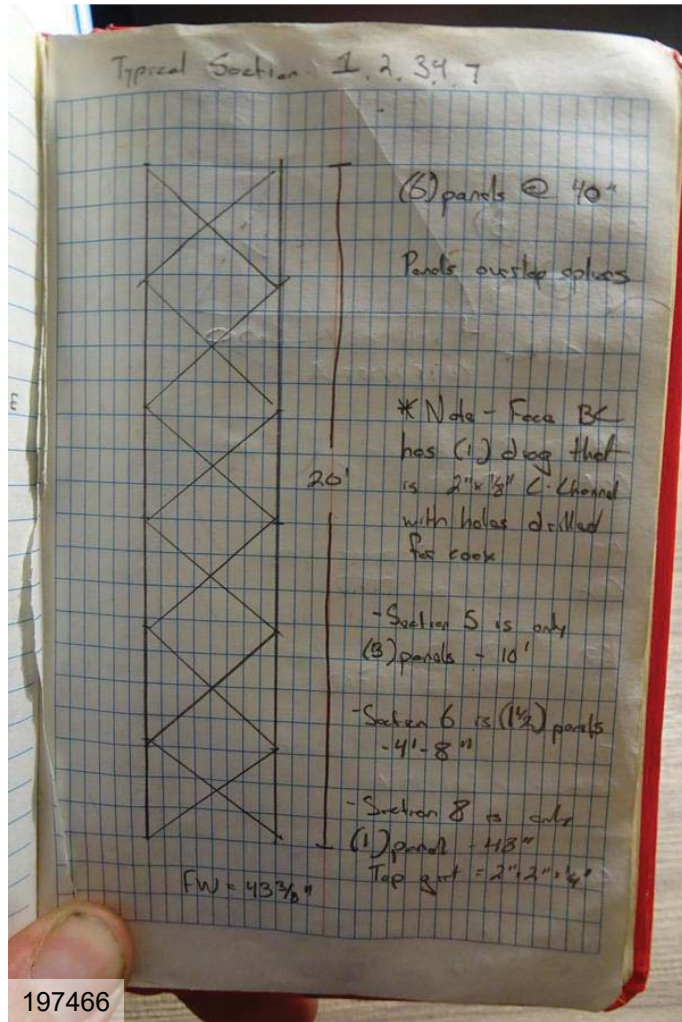 Typical Section 1, 2, 3, 4, 7
(6) panels @ 40"
Panels overlap splices
* Note - Face BC
has (1) diag that
is 2" x 1/8" C-Channel
with holes drilled
for coax
20'
- Section 5 is only
(3) panels - 10'
- Section 6 is (1 1/2) panels
- 4'-8"
- Section 8 is only
(1) panel - 48"
Top girt = 2" x 2" x 1/4"
FW = 43 3/8"
E
197466